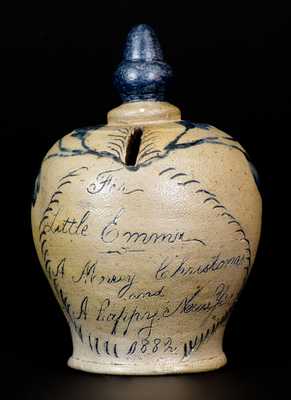 For
Little Emma
A Merry Christmas
and
A happy New Year
1882